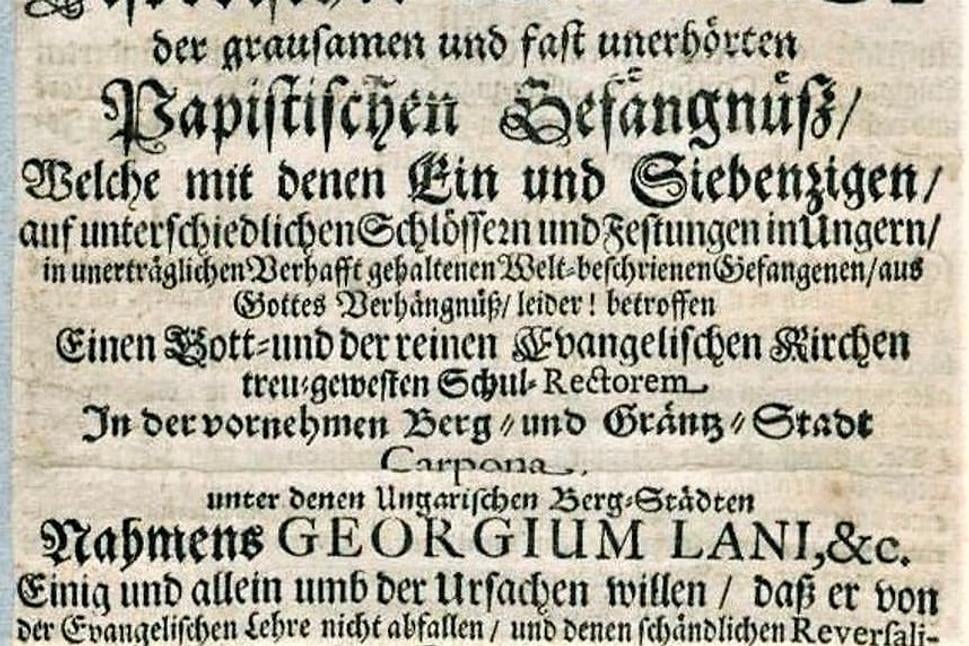 der grausamen und fast unerhörten
Papistischen Gefängnüß/
Welche mit denen Ein und Siebenzigen/
auf unterschiedlichen Schlössern und Festungen in Ungern/
in unerträglichen Verhafft gehaltenen Welt-beschrienen Gefangenen/aus
Gottes Verhängnüß/ leider! betroffen
Einen Gott-und der reinen Evangelischen Kirchen
treu-gewesten Schul-Rectorem
In der vornehmen Berg-und Gräntz-Stadt
Carpona,
unter denen Ungarischen Berg-Städten
Nahmens GEORGIUM LANI,&c.
Einig und allein umb der Ursachen willen / daß er von
der Evangelischen Lehre nicht abfallen / und denen schändlichen Reversali-